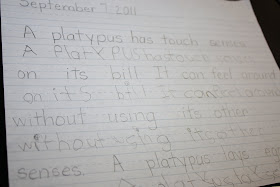 September 7, 2011
A platypus has touch senses
A PlatYPUS has touch
on its bill. It can feel around
on itS bill It can feel around
without using its other
without using its other
senses. A platypus lays